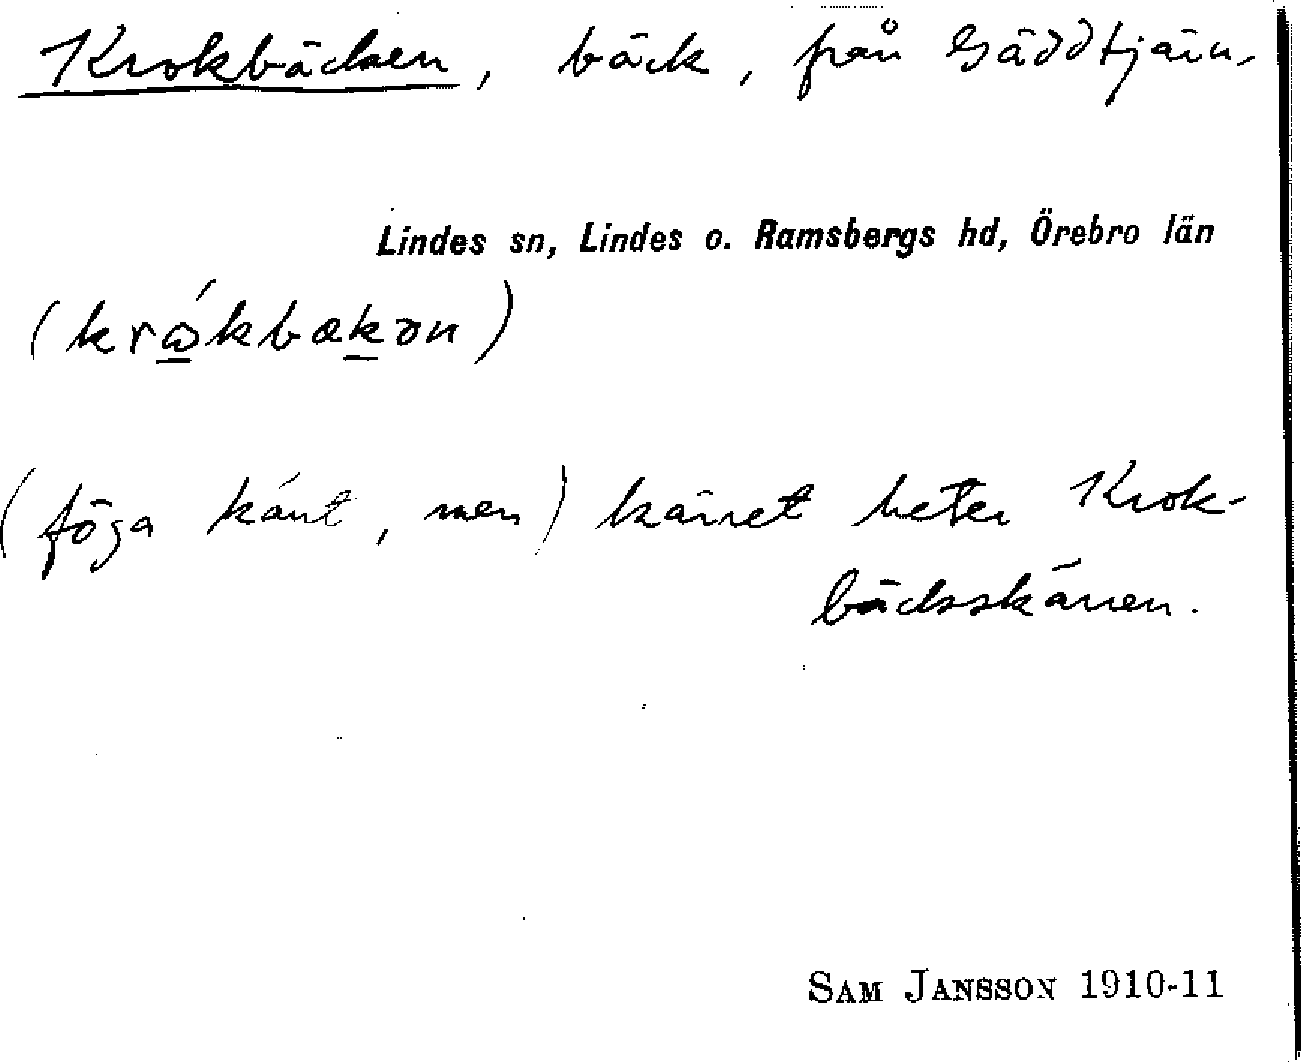 Krokbäcken, bäck, från Gäddtjärn,
Lindes sn, Lindes o. Ramsbergs hd, Örebro län
(krώkbækən)
(föga känt, men) kärret heter Krok-
bäckskärren.
SAM JANSSON 1910-11